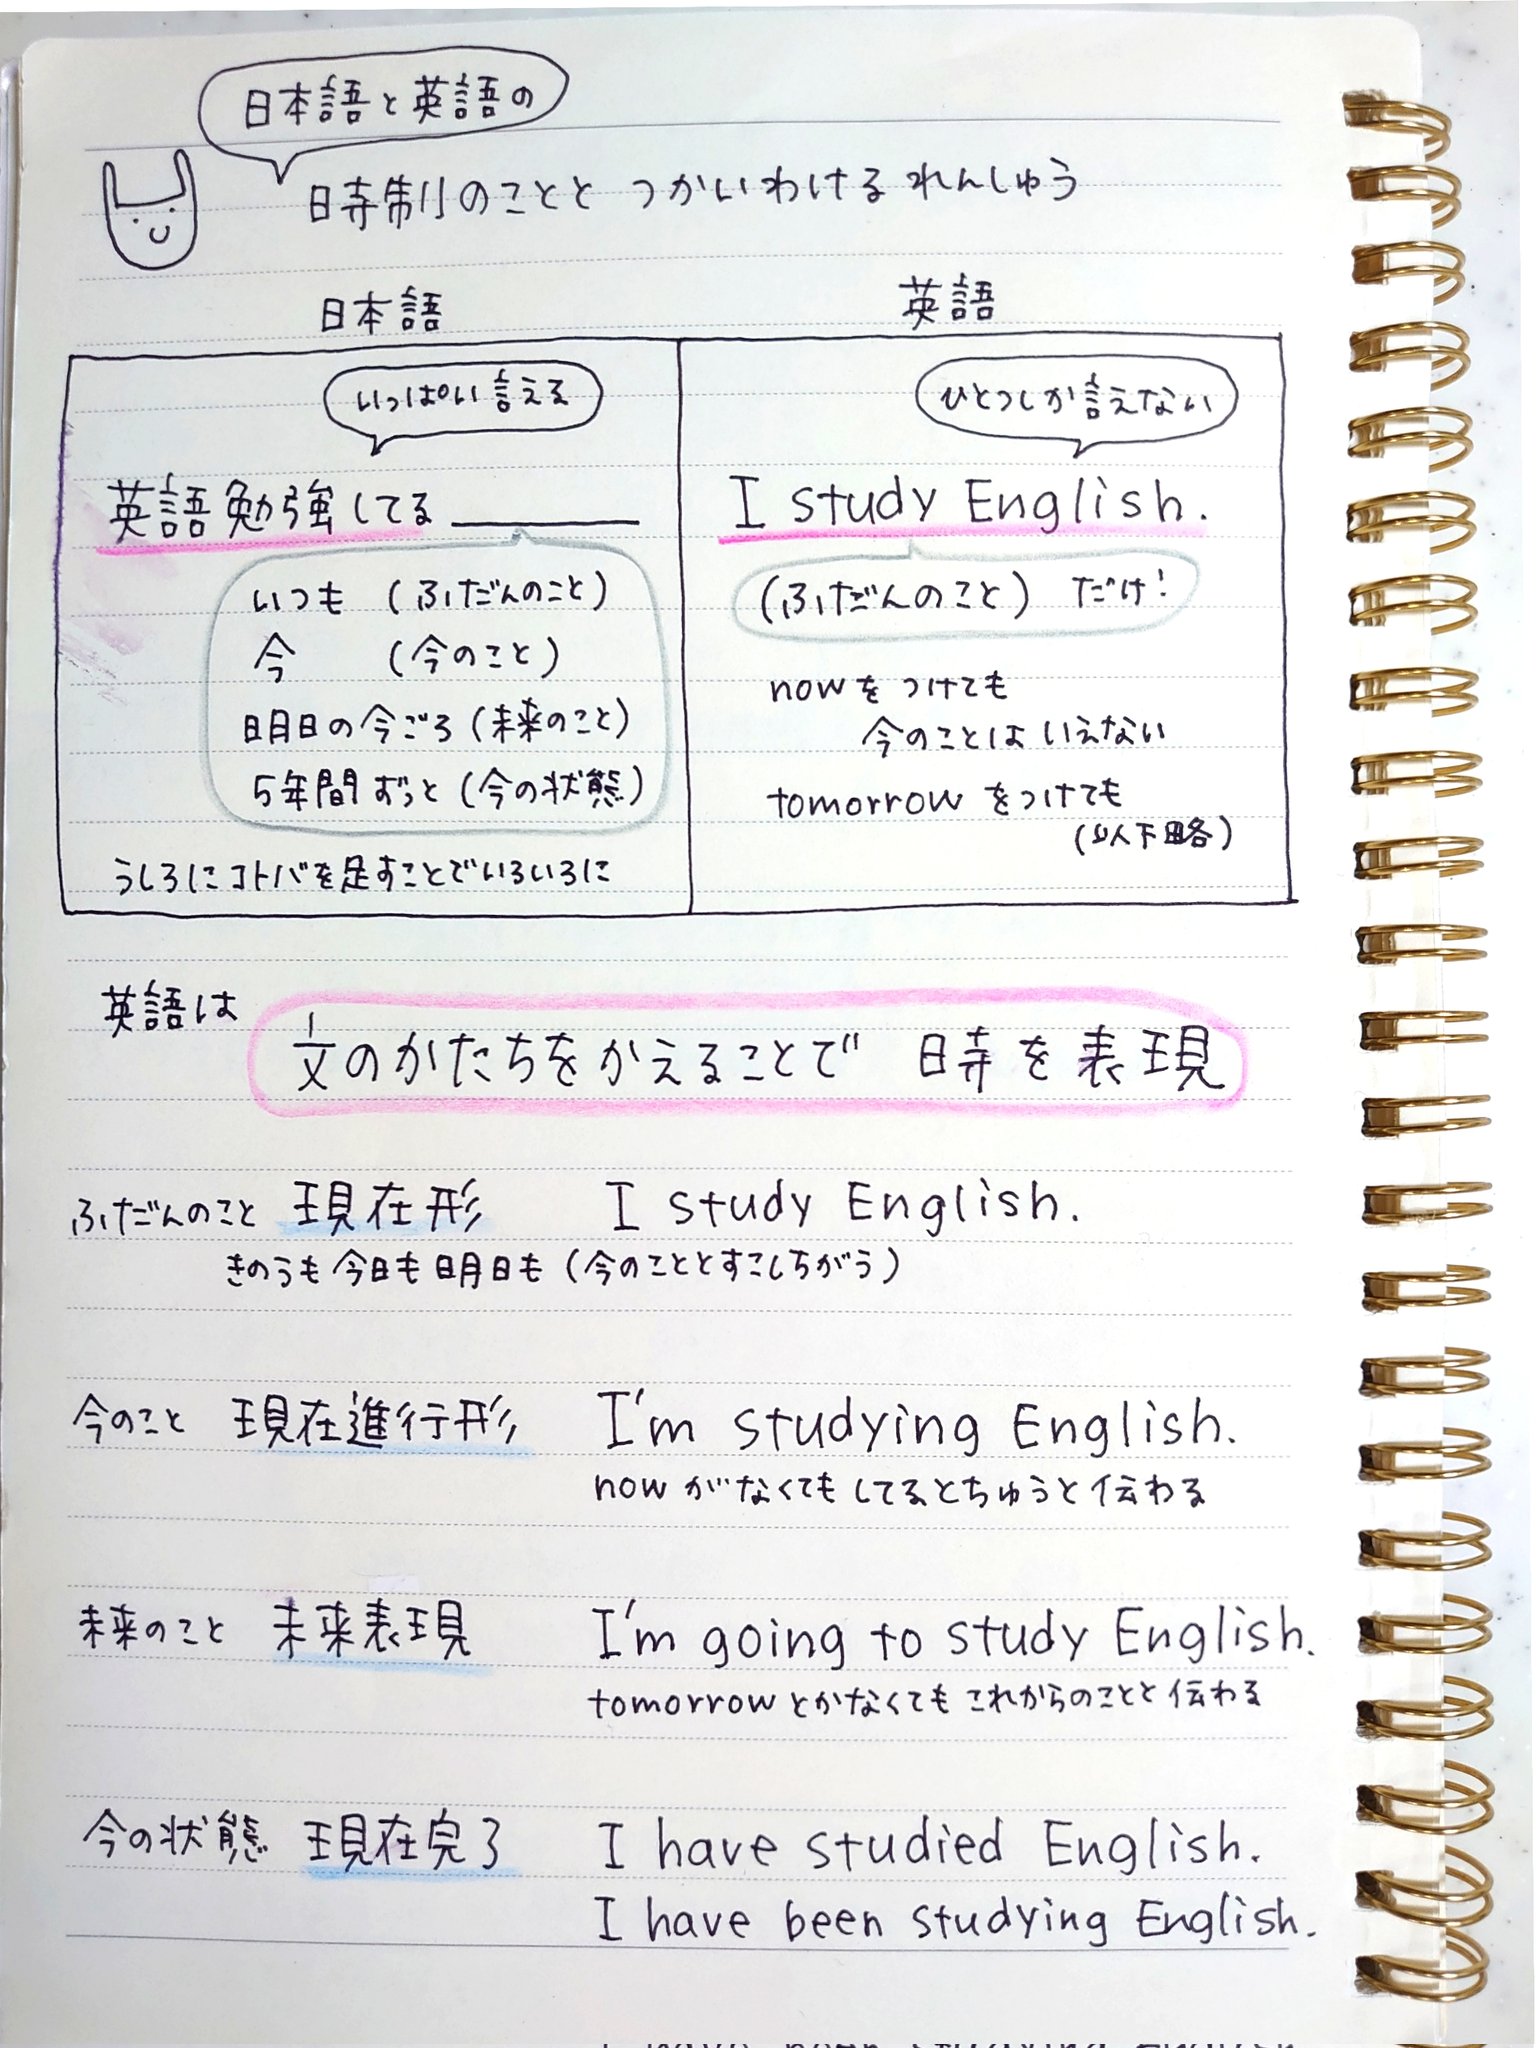 日本語と英語の
時制のことと つかいわけるれんしゅう
日本語
英語
いっぱい言える
英語勉強してる
いつも (ふだんのこと)
今 (今のこと)
明日の今ごろ (未来のこと)
5年間ずっと (今の状態)
うしろにコトバを足すことでいろいろに
ひとつしか言えない
I study English.
(ふだんのこと) だけ!
nowをつけても
今のことはいえない
tomorrowをつけても
(以下略)
英語は
文のかたちをかえることで 時を表現
ふだんのこと 現在形 I study English.
きのうも今日も明日も (今のこととすこしちがう)
今のこと 現在進行形 I'm studying English.
nowがなくてもしてるとちゅうと伝わる
未来のこと 未来表現 I'm going to study English.
tomorrowとかなくてもこれからのことと伝わる
今の状態 現在完了 I have studied English.
I have been studying English.